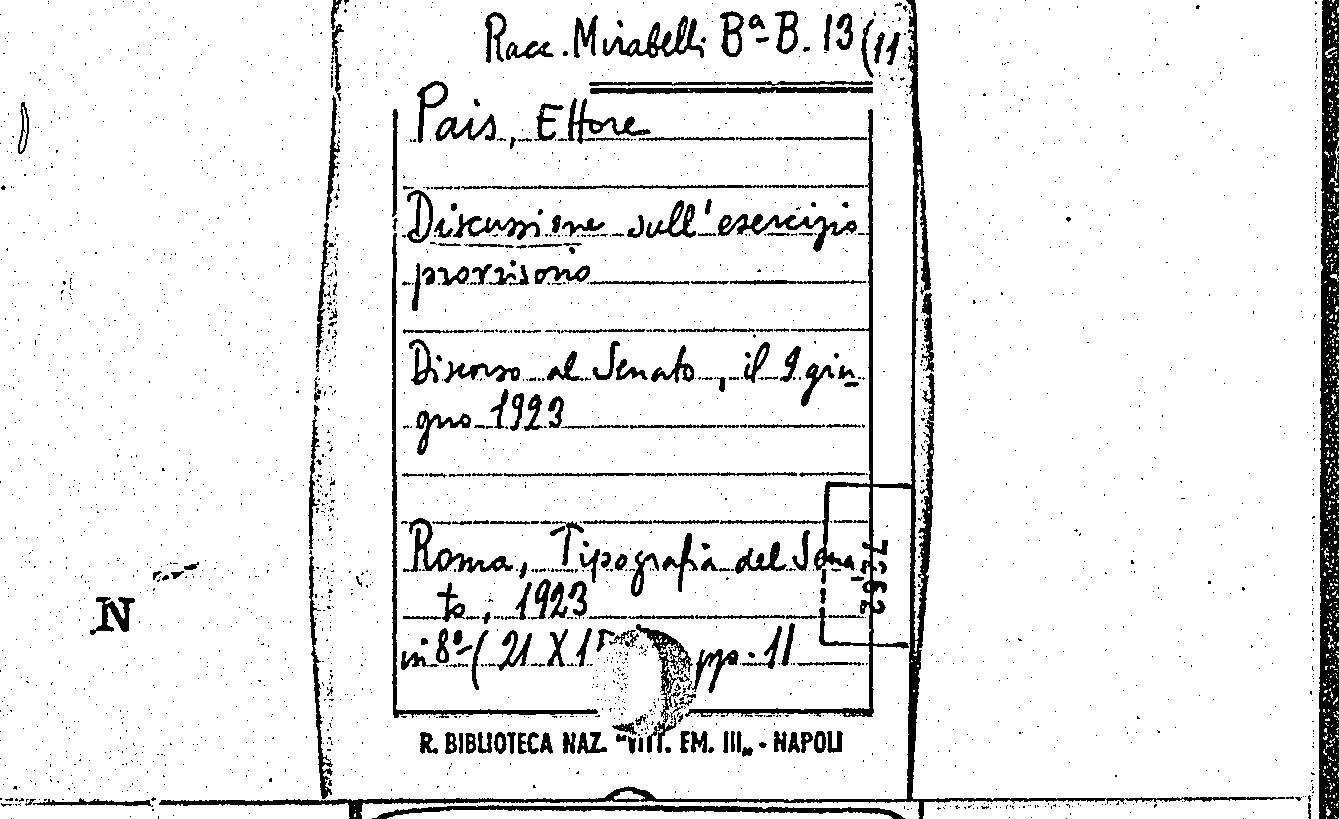 Racc. Mirabelli Bª B. 13 (11
Pais, Ettore
Discussione sull'esercizio
provvisorio
Discorso al Senato, il 9 giu-
gno 1923
Roma, Tipografia del Sena-
to, 1923
in 8º (21 X 1 pp. 11
R. BIBLIOTECA NAZ. "VITT. EM. III„ - NAPOLI
N